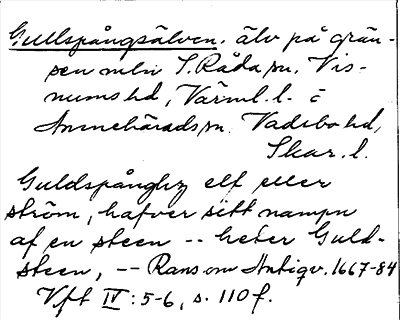 Gullspångsälven. älv på grän-
sen mln S. Råda sn. Vis-
nums hd, Värml. l. o
Amnehärads sn. Vadsbo hd,
Skar. l.
Guldspångz elf eller
ström, hafver sitt nampn
af en steen -- heter Guld-
steen, -- Rans om Antiqv. 1667-84
Vft IV: 5-6, s. 110 f.